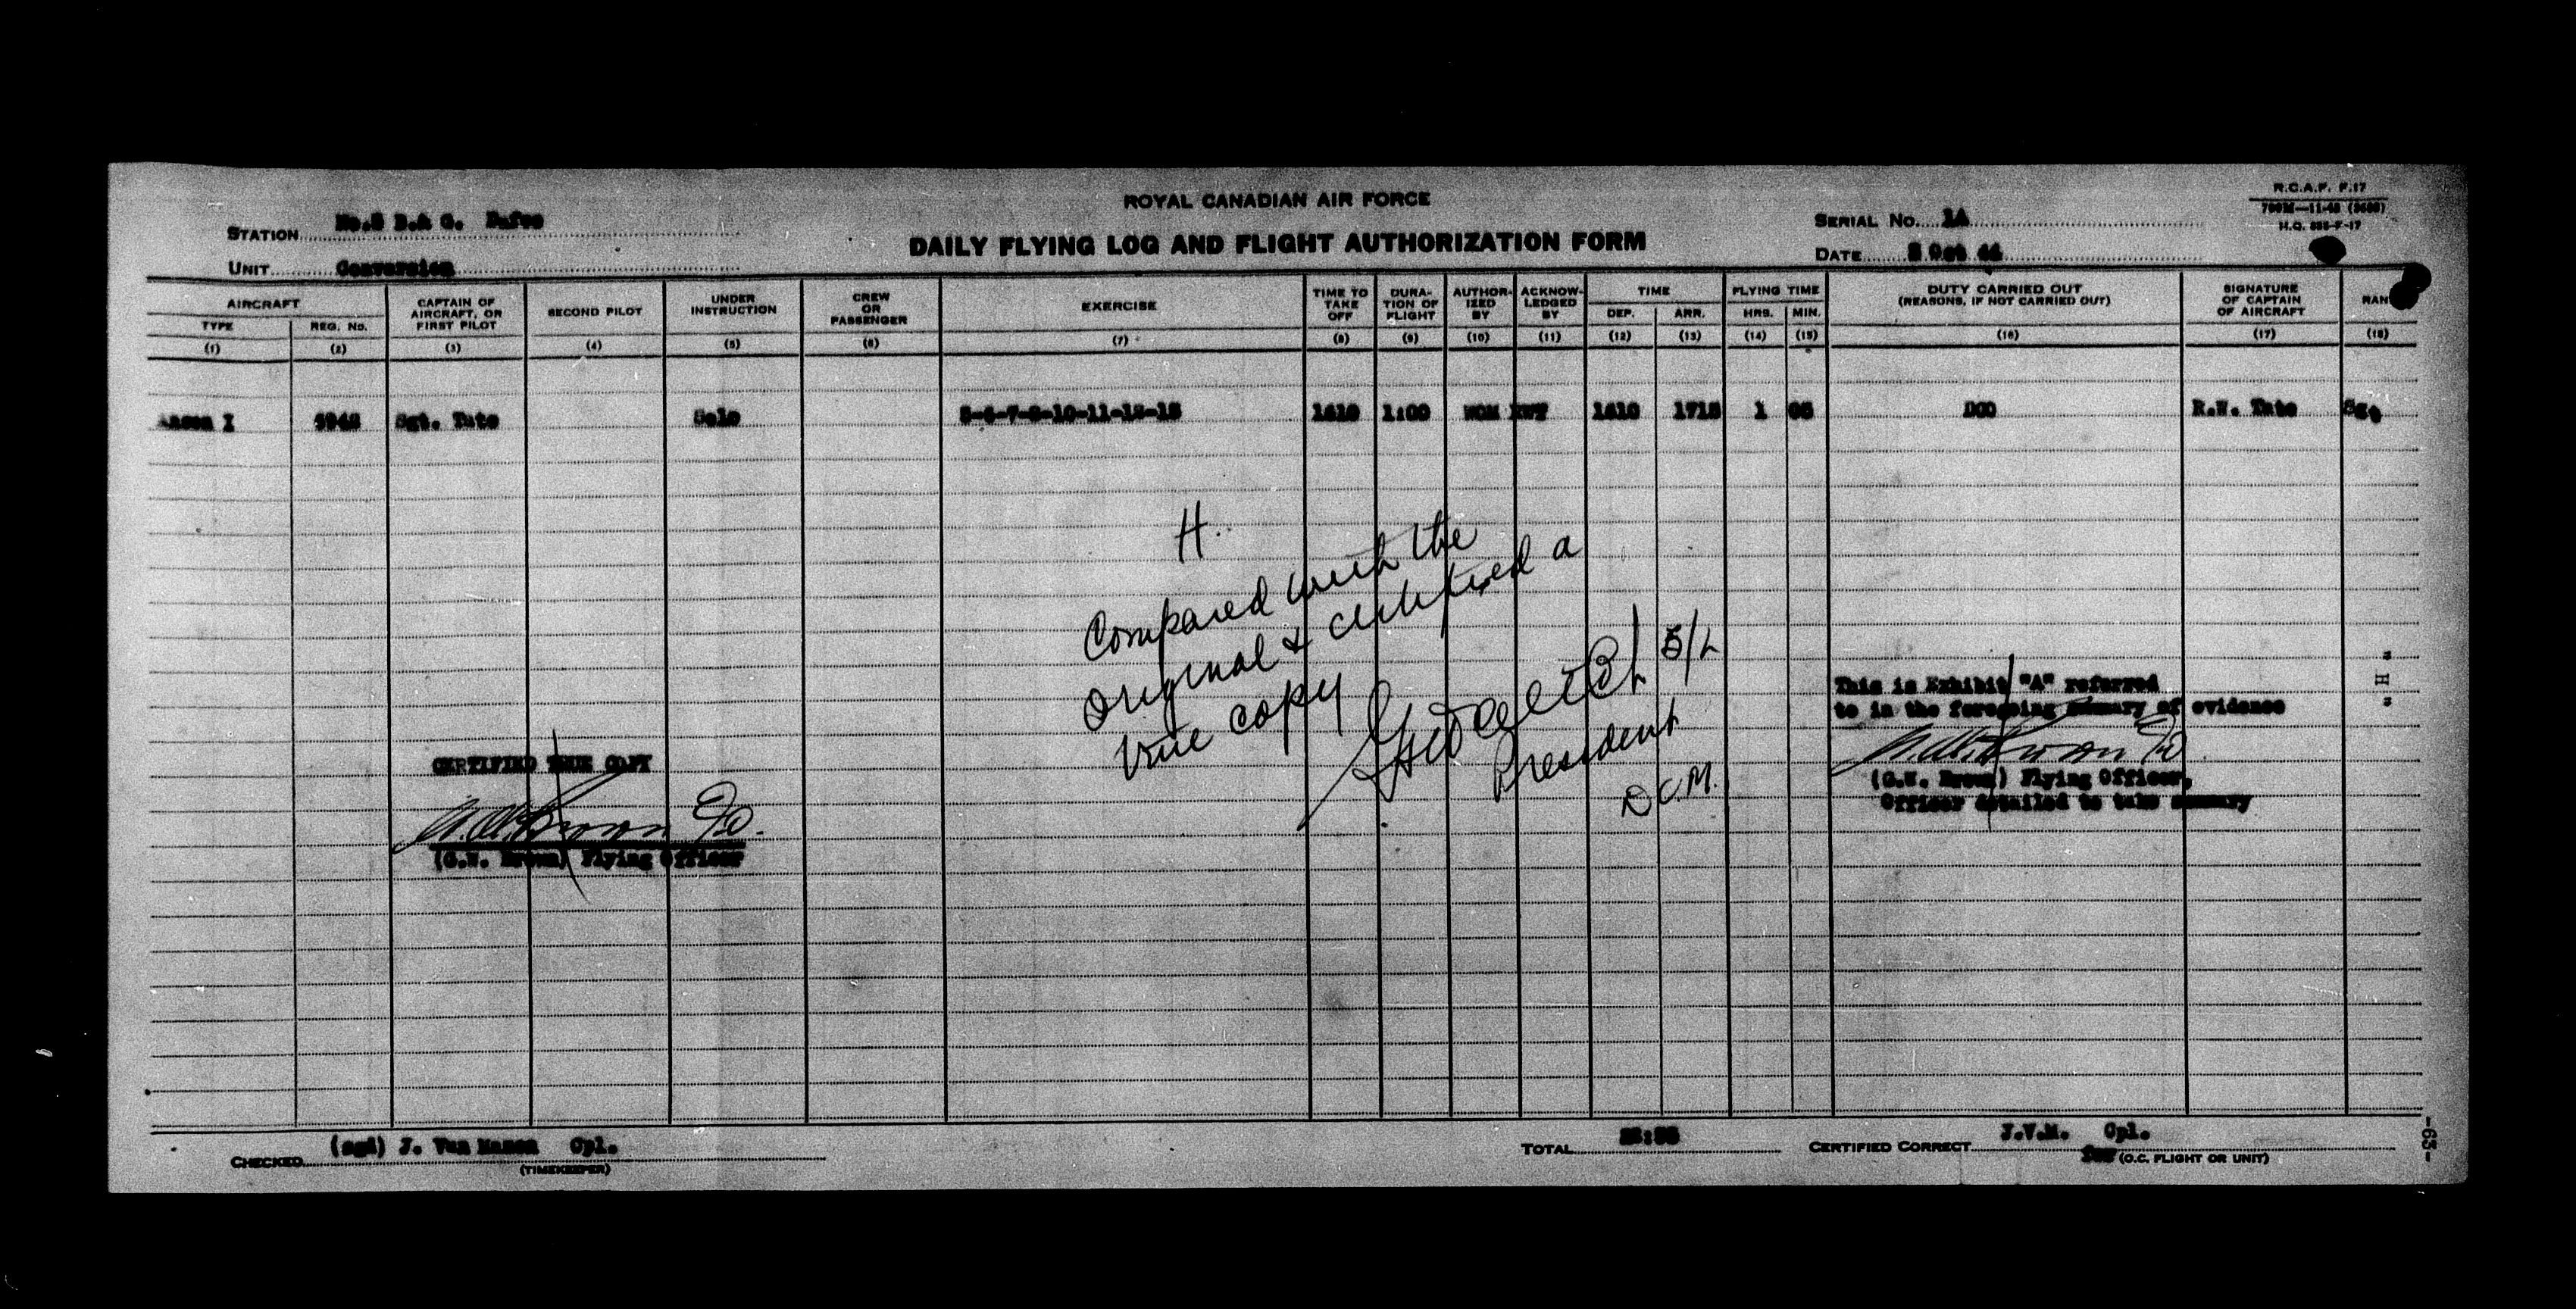 ROYAL CANADIAN AIR FORCE
DAILY FLYING LOG AND FLIGHT AUTHORIZATION FORM
R.C.A.F. F.17
STATION No.5 B.& G. Dafoe
UNIT Conversion
SERIAL NO. 1A
DATE Oct 44
AIRCRAFT
TYPE
REG. NO.
CAPTAIN OF AIRCRAFT, OR FIRST PILOT
SECOND PILOT
UNDER INSTRUCTION
CREW OR PASSENGER
EXERCISE
TIME TO TAKE OFF
DURATION OF FLIGHT
AUTHORIZED BY
ACKNOWLEDGED BY
TIME
DEP.
ARR.
FLYING TIME
HRS.
MIN.
DUTY CARRIED OUT
(REASONS, IF NOT CARRIED OUT)
SIGNATURE OF CAPTAIN OF AIRCRAFT
RAN
(1) (2) (3) (4) (5) (6) (7) (8) (9) (10) (11) (12) (13) (14) (15) (16) (17) (18)
Anson I Sgt. Tate Solo 1610 1:00 1610 1715 1 05 DCO R.W. Tate Sgt
H.
Compared with the
original & certified a
true copy
S/L
President
D.C.M.
CERTIFIED TRUE COPY
(G.W. Brown) Flying Officer
This is Exhibit "A" referred
to in the foregoing summary of evidence
(G.W. Brown) Flying Officer,
Officer detailed to take summary
"H"
CHECKED (sgd) J. Van Cpl.
(TIMEKEEPER)
TOTAL
CERTIFIED CORRECT J.V.M. Cpl.
for (O.C. FLIGHT OR UNIT)
-63-